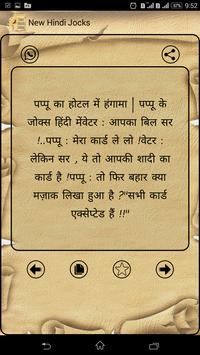 9:52
New Hindi Jocks
पप्पू का होटल में हंगामा | पप्पू के
जोक्स हिंदी मेंवेटर : आपका बिल सर
!..पप्पू : मेरा कार्ड ले लो !वेटर :
लेकिन सर , ये तो आपकी शादी का
कार्ड है !पप्पू : तो फिर बहार क्या
मज़ाक लिखा हुआ है ?"सभी कार्ड
एक्सेप्टेड हैं !!"